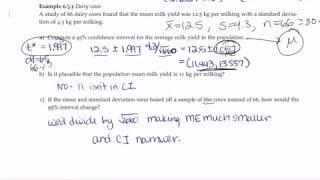 x̄=12.5, s=4.3, n=66≥30
Example 6.7.3 Dairy cows
A study of 66 dairy cows found that the mean milk yield was 12.5 kg per milking with a standard devia-
tion of 4.3 kg per milking.
a) Compute a 95% confidence interval for the average milk yield in the population.
t*=1.997
df=
66-1
12.5 ± 1.997 4.3/√66 = 12.5 ± 1.057
(11.443, 13.557)
μ
b) Is it plausible that the population mean milk yield is 11 kg per milking?
No - 11 isn't in CI
c) If the mean and standard deviation were based off a sample of 660 cows instead of 66, how would the
95% interval change?
we'd divide by √660 making ME much smaller
and CI narrower.